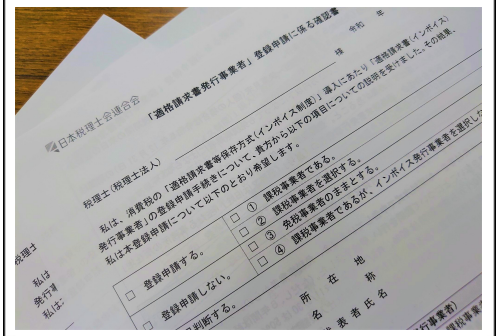 日本税理士会連合会
「適格請求書発行事業者」登録申請に係る確認書
令和 年
様
税理士(税理士法人)
私は、消費税の「適格請求書等保存方式(インボイス制度)」導入にあたり「適格請求書(インボイス)
発行事業者」の登録申請手続きについて、貴方から以下の項目についての説明を受けました。その結果、
私は本登録申請について以下のとおり希望します。
□ 登録申請する。
□ ① 課税事業者である。
□ ② 課税事業者を選択する。
□ 登録申請しない。
□ ③ 免税事業者のままとする。
□ ④ 課税事業者であるが、インボイス発行事業者を選択しな
判断する。
所 在 地
名 称
代表者氏名
税理士
私は
発行事
私は